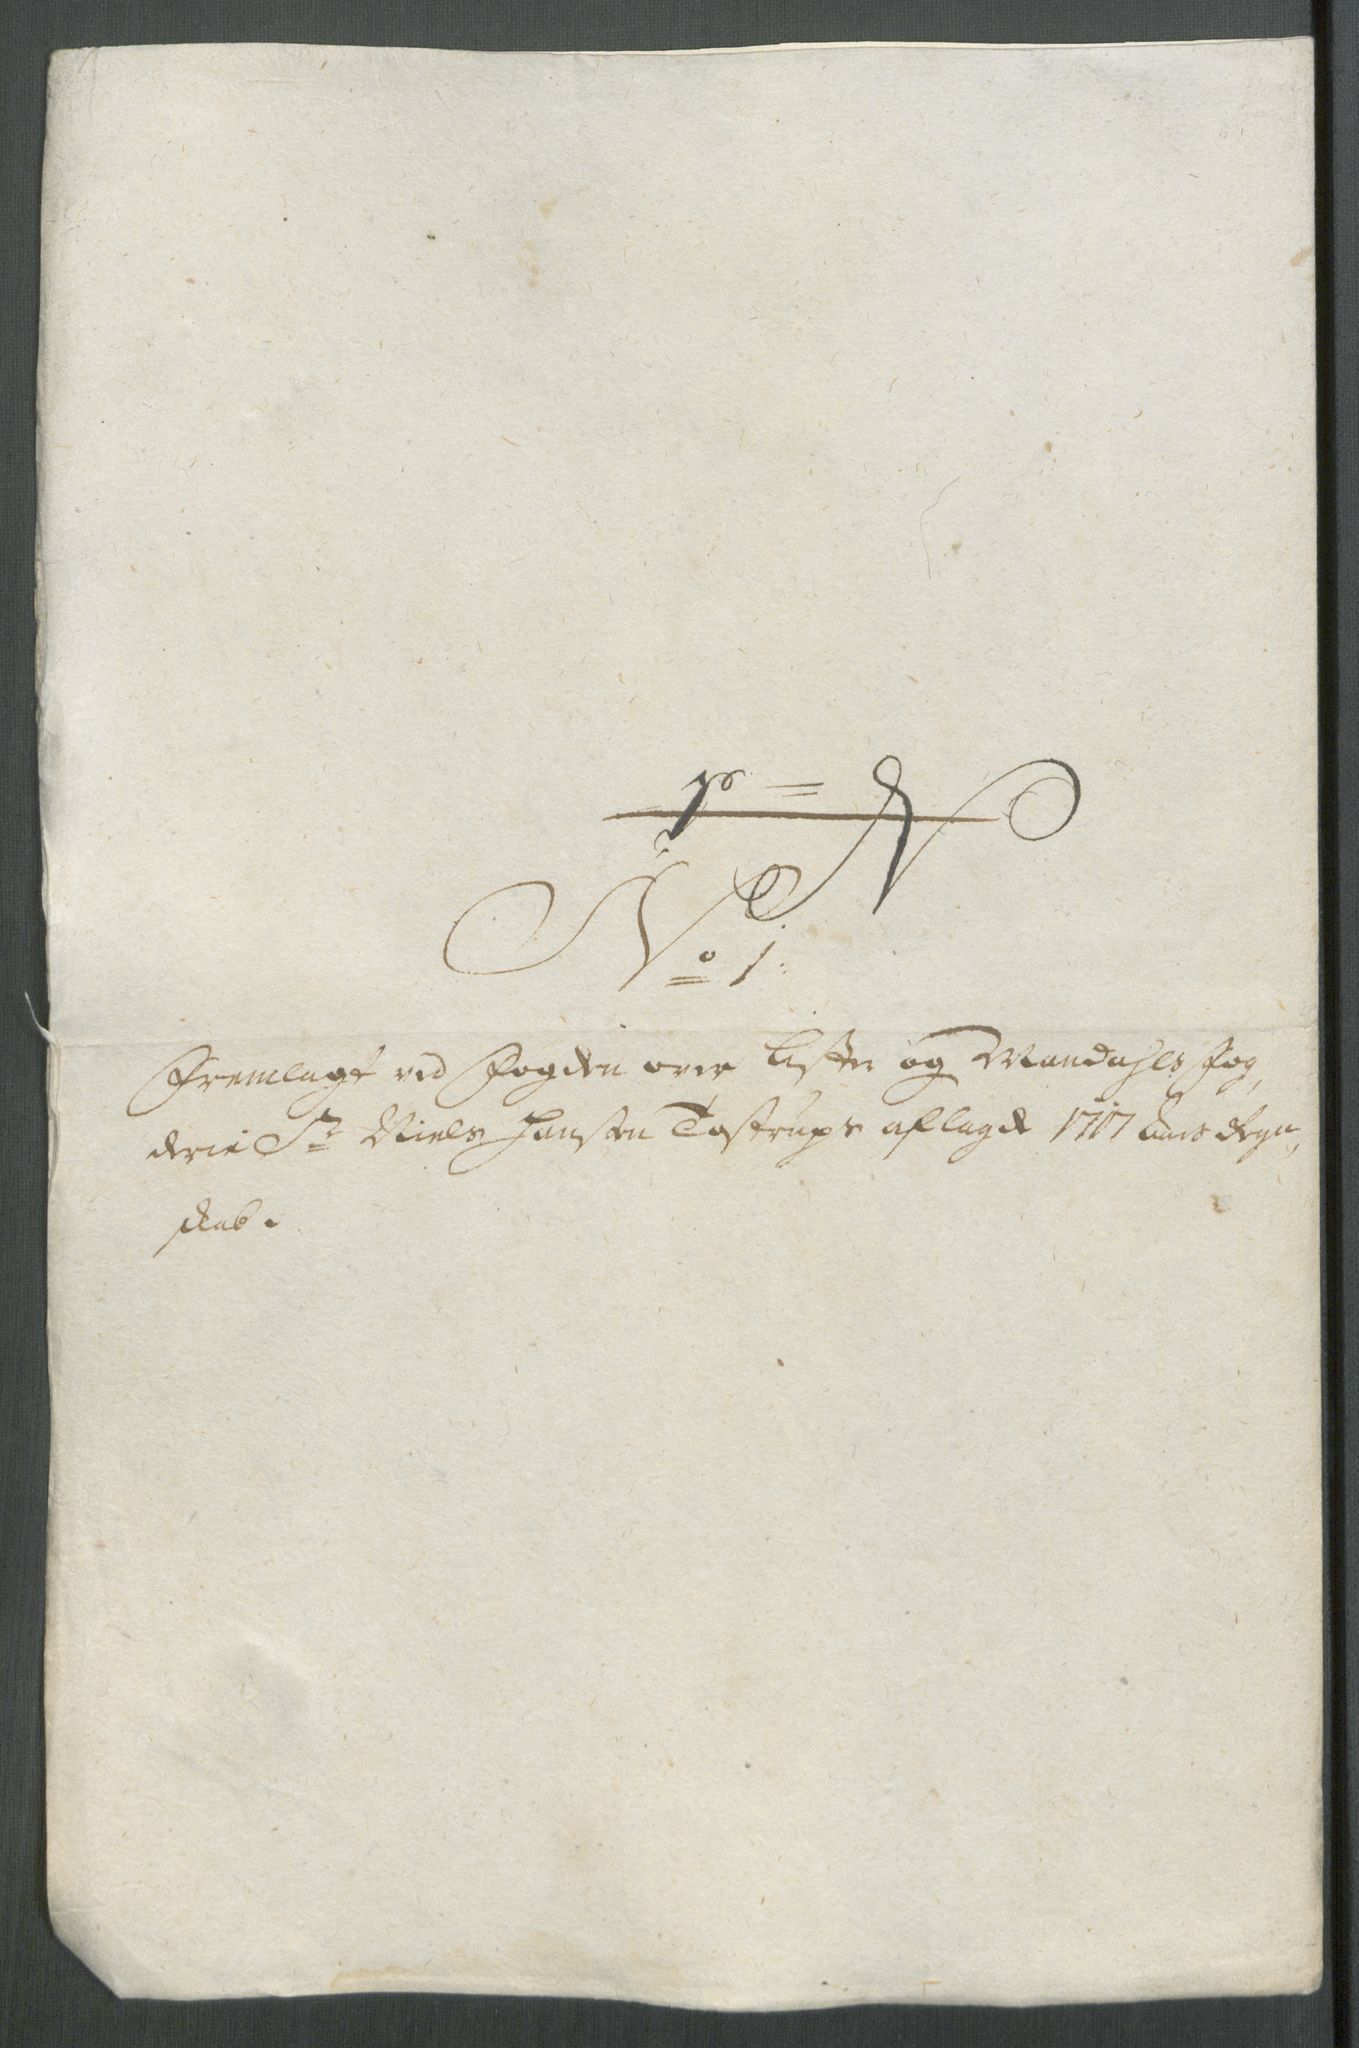 No 1.
Fremlagt ved Fogden over Lister og Mandahls Fog,
derie Sr Niels Hansen Tostrups aflagde 1717 Aars Regn,
skab.